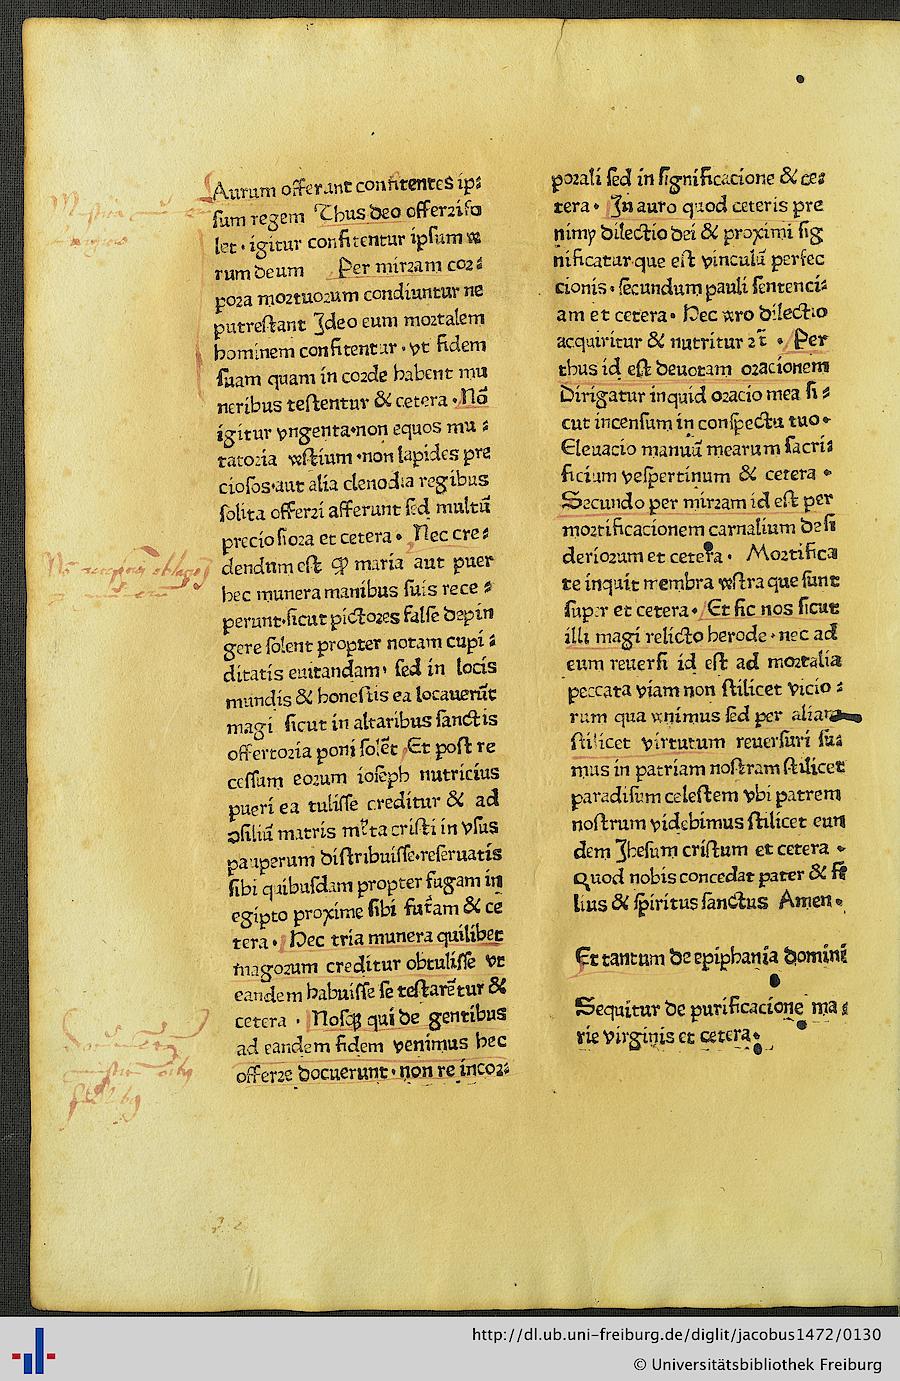 Aurum offerant confitentes ip⸗
sum regem Thus deo offerri so
let · igitur confitentur ipsum ve
rum deum Per mirram cor⸗
pora mortuorum condiuntur ne
putrescant Ideo eum mortalem
hominem confitentur · vt fidem
suam quam in corde habent mu
neribus testentur & cetera · Nō
igitur vngenta·non equos mu⸗
tatoria vestium·non lapides pre
ciosos·aut alia clenodia regibus
solita offerri afferunt sed multū
preciosiora et cetera · Nec cre⸗
dendum est ꝙ maria aut puer
hec munera manibus suis rece⸗
perunt·sicut pictores false depin
gere solent propter notam cupi⸗
ditatis euitandam· sed in locis
mundis & honestis ea locauerūt
magi sicut in altaribus sanctis
offertoria poni solēt Et post re
cessum eorum ioseph nutricius
pueri ea tulisse creditur & ad
ꝯsiliū matris cristi in vsus
pauperum distribuisse·reseruatis
sibi quibusdam propter fugam in
egipto proxime sibi & ce
tera · Hec tria munera quilibet
magorum creditur obtulisse vt
eandem habuisse se testarētur &
cetera · Nosqꝫ qui de gentibus
ad eandem fidem venimus hec
offerre docuerunt · non re incor⸗
porali sed in significacione & ce⸗
tera · In auro quod ceteris pre
nimꝫ dilectio dei & proximi sig
nificatur·que est vinculū perfec
cionis · secundum pauli sentenci⸗
am et cetera · Hec vero dilectio
acquiritur & nutritur ⁊ť · Per
thus id est deuotam oracionem
Dirigatur inquid oracio mea si⸗
cut incensum in conspectu tuo ·
Eleuacio manuū mearum sacri⸗
ficium vespertinum & cetera ·
Secundo per mirram id est per
mortificacionem carnalium desi
deriorum et cetera · Mortifica
te inquit membra vestra que sunt
super et cetera · Et sic nos sicut
illi magi relicto herode · nec ad
eum reuersi id est ad mortalia
peccata viam non scilicet vicio⸗
rum qua venimus sed per aliam
scilicet virtutum reuersuri su⸗
mus in patriam nostram scilicet
paradisum celestem vbi patrem
nostrum videbimus scilicet eun
dem Ihesum cristum et cetera ·
Quod nobis concedat pater & fi
lius & spiritus sanctus Amen ·
Et tantum de epiphania domini
Sequitur de purificacione ma⸗
rie virginis et cetera ·
http://dl.ub.uni-freiburg.de/diglit/jacobus1472/0130
© Universitätsbibliothek Freiburg